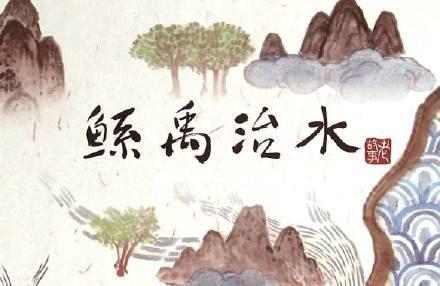 鲧禹治水
老故事